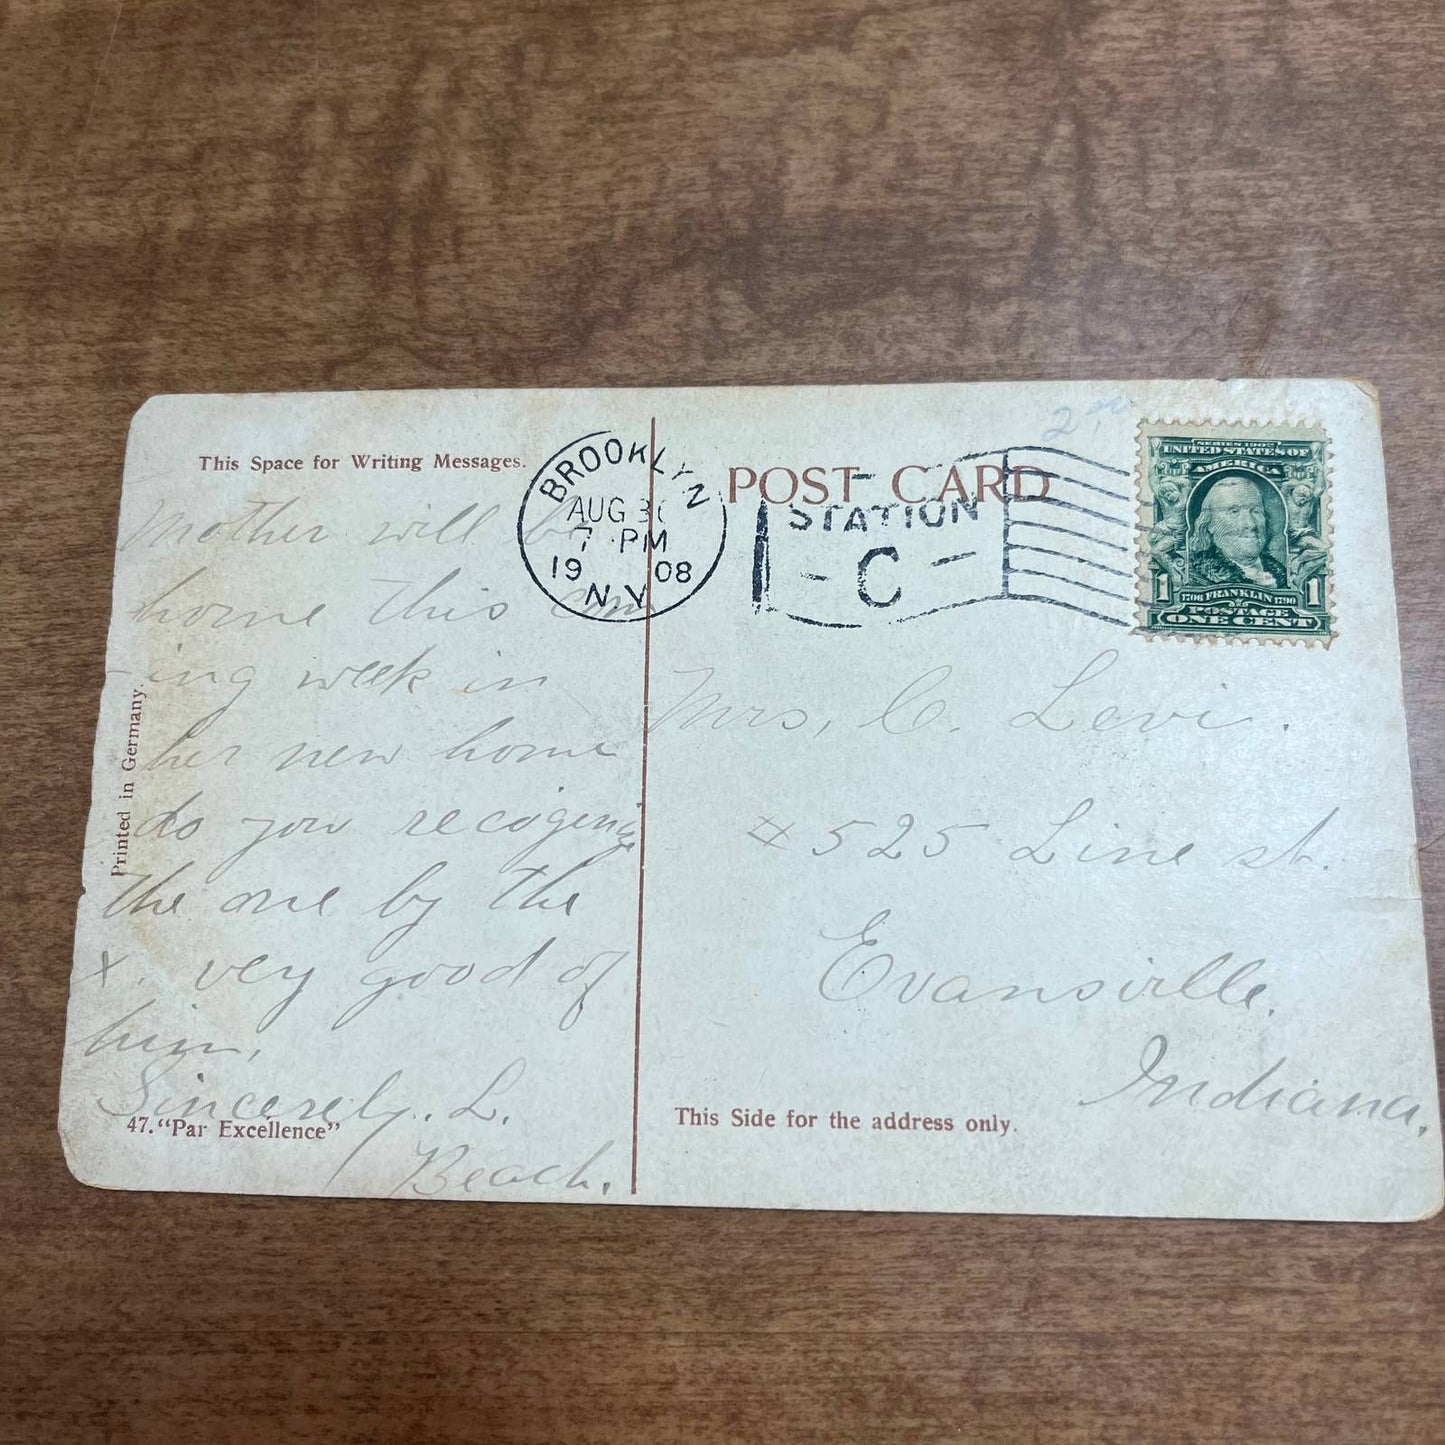 This Space for Writing Messages.
BROOKLYN
AUG 3
7 PM
19 08
N.Y.
POST CARD
STATION
C
SERIES 1902
UNITED STATES OF
AMERICA
1 1
1706 FRANKLIN 1790
POSTAGE
ONE CENT
Mother will be
home this com
-ing week in
her new home
do you
the one by the
x. very good of
him,
Sincerely. L.
Beach.
Printed in Germany.
47. "Par Excellence"
Mrs, C. Levi.
# 525 Line st.
Evansville.
Indiana.
This Side for the address only.